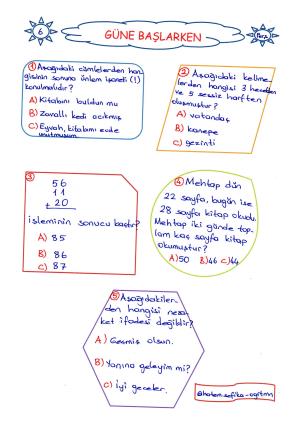 6
GÜNE BAŞLARKEN
① Aşağıdaki cümlelerden han
gisinin sonuna ünlem işareti (!)
konulmalıdır?
A) Kitabını buldun mu
B) Zavallı kedi acıkmış
C) Eyvah, kitabımı evde
unutmuşum
② Aşağıdaki kelime-
lerden hangisi 3 heceden
ve 5 sessiz harften
oluşmuştur?
A) vatandaş
B) kanepe
C) gezinti
③
56
11
+ 20
işleminin sonucu kaçtır?
A) 85
B) 86
C) 87
④ Mehtap dün
22 sayfa, bugün ise
28 sayfa kitap okudu.
Mehtap iki günde top-
lam kaç sayfa kitap
okumuştur?
A) 50 B) 46 C) 44
⑤ Aşağıdakiler-
den hangisi neza-
ket ifadesi değildir?
A) Geçmiş olsun.
B) Yanına geleyim mi?
C) İyi geceler.